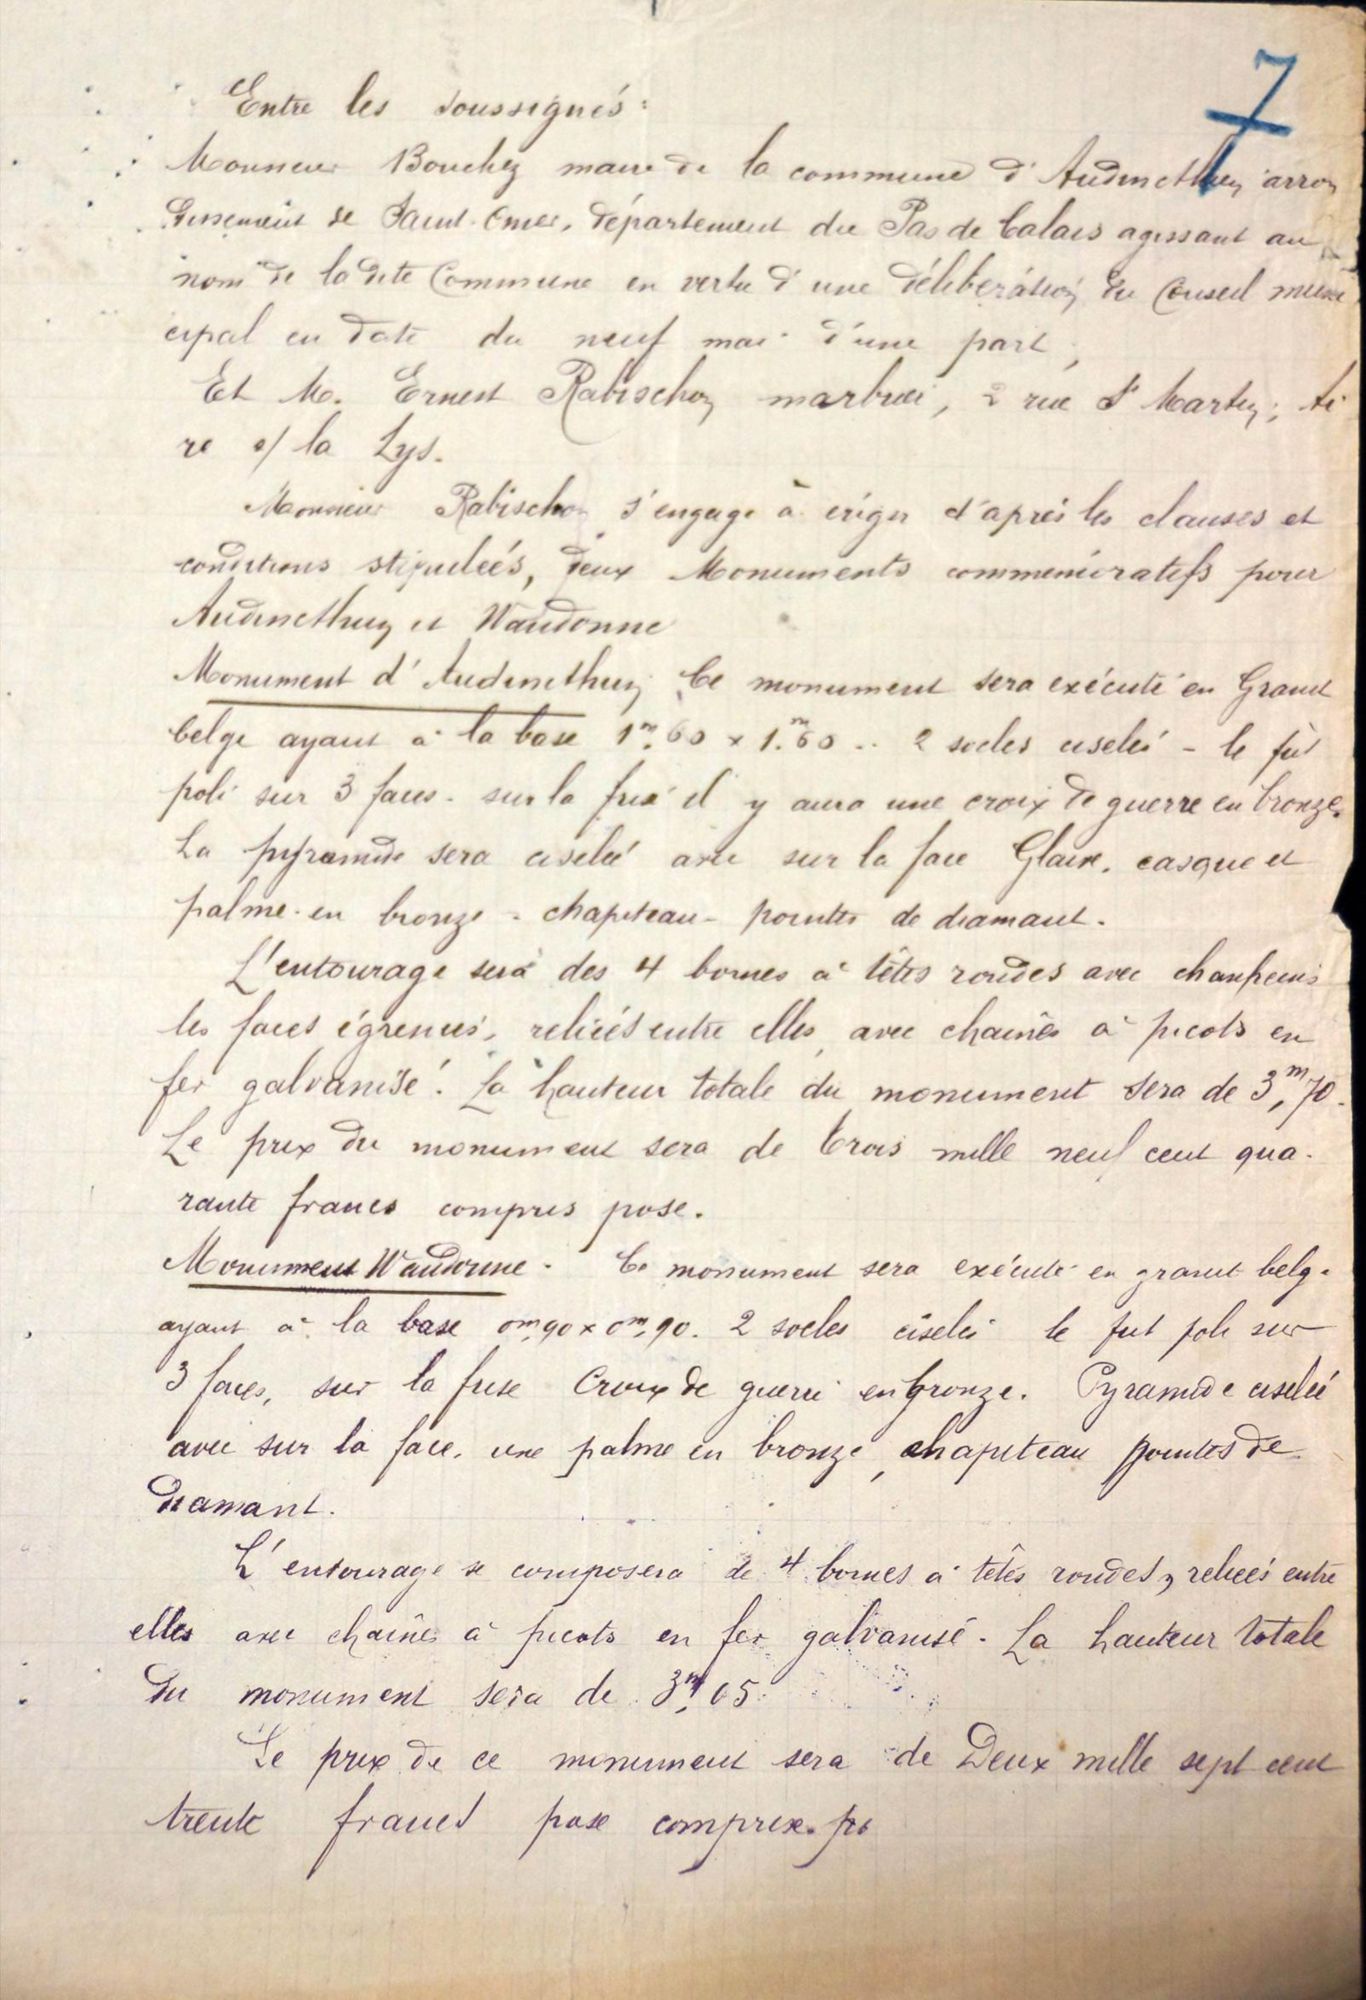 7
Entre les soussignés :
Monsieur Bouchez maire de la commune d'Audincthun arron
dissement de Saint-Omer, département du Pas de Calais agissant au
nom de la dite Commune en vertu d'une délibération du Conseil muni
cipal en date du neuf mai d'une part,
Et M. Ernest Rabischon marbrier, 2 rue St Martin, Ai
re s/ la Lys.
Monsieur Rabischon s'engage à ériger d'après les clauses et
conditions stipuleés, deux Monuments commémoratifs pour
Audincthun et Wandonne
Monument d'Audincthun Ce monument sera exécuté en Granit
belge ayant à la base 1m,60 x 1m,60 .. 2 socles ciselés - le fût
poli sur 3 faces - sur la frise il y aura une croix de guerre en bronze.
La pyramide sera ciseleé avec sur la face Glaive, casque et
palme en bronze - chapiteau - pointes de diamant.
L'entourage sera des 4 bornes à têtes rondes avec chanfreins
les faces égrenées, relieés entre elles, avec chaînes à picots en
fer galvanisé. La hauteur totale du monument sera de 3m,70.
Le prix du monument sera de trois mille neuf cent qua-
rante francs compris pose.
Monument Wandonne - Ce monument sera exécuté en granit belge
ayant à la base 0m,90 x 0m,90. 2 socles ciselés le fut poli sur
3 faces, sur la frise Croix de guerre en bronze. Pyramide ciseleé
avec sur la face, une palme en bronze, chapiteau pointes de
diamant.
L'entourage se composera de 4 bornes à têtes rondes, relieés entre
elles avec chaînes à picots en fer galvanisé - La hauteur totale
du monument sera de 3m,05
Le prix de ce monument sera de Deux mille sept cent
trente francs pose comprise.